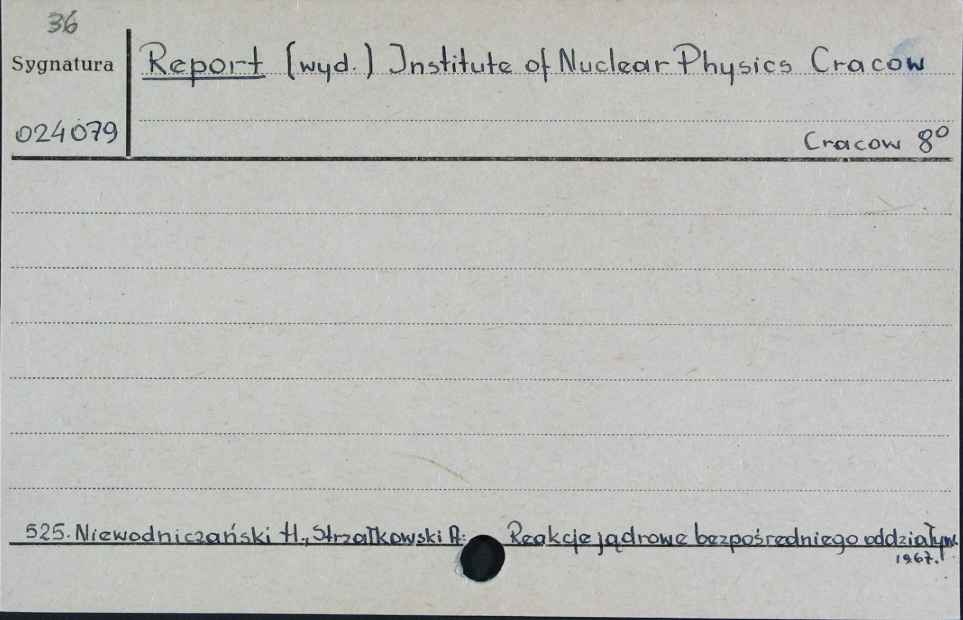 36
Sygnatura
Report (wyd.) Institute of Nuclear Physics Cracow
024079
Cracow 8°
525. Niewodniczański H., Strzałkowski A.: Reakcje jądrowe bezpośredniego oddziaływ.
1967.